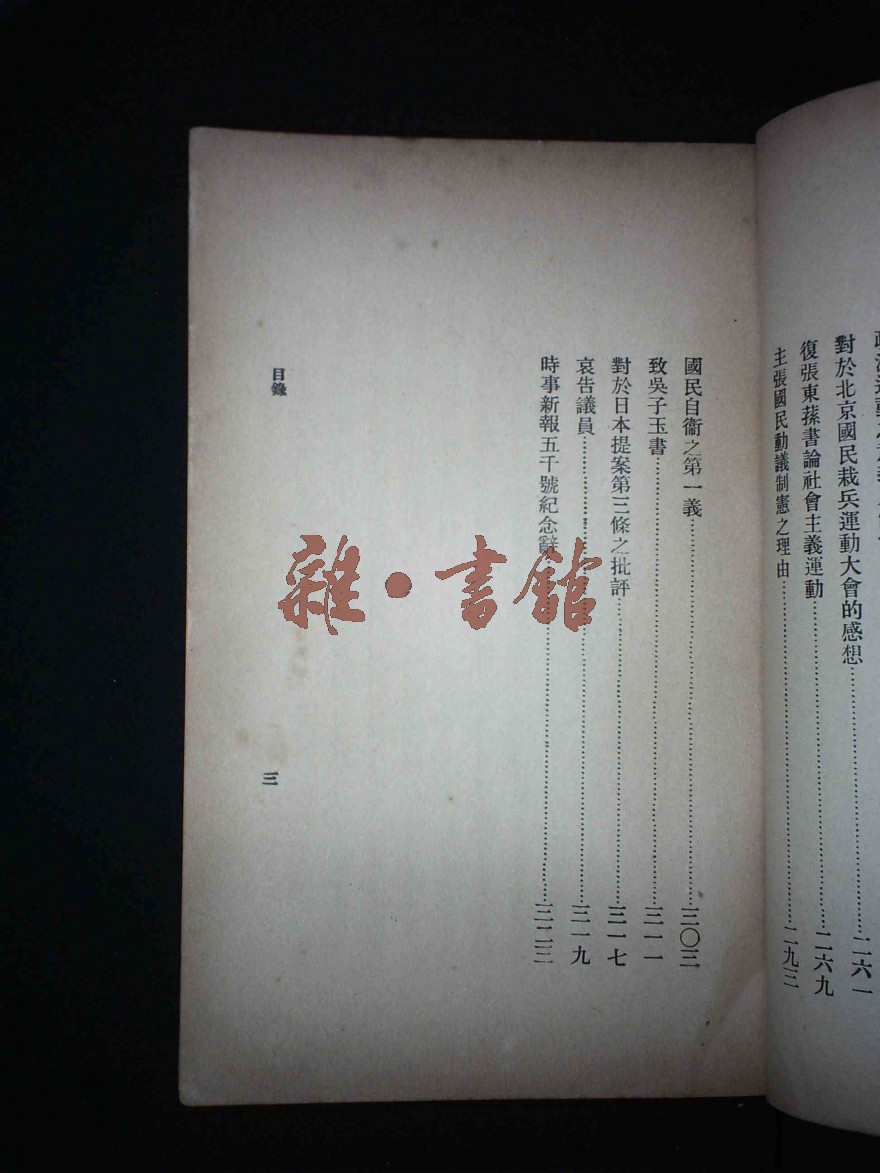 對於北京國民裁兵運動大會的感想……二六一
復張東蓀書論社會主義運動……二六九
主張國民動議制憲之理由……二九三
國民自衞之第一義……三〇三
致吳子玉書……三一一
對於日本提案第三條之批評……三一七
哀告議員……三一九
時事新報五千號紀念辭……三二三
目錄
三
雜·書館